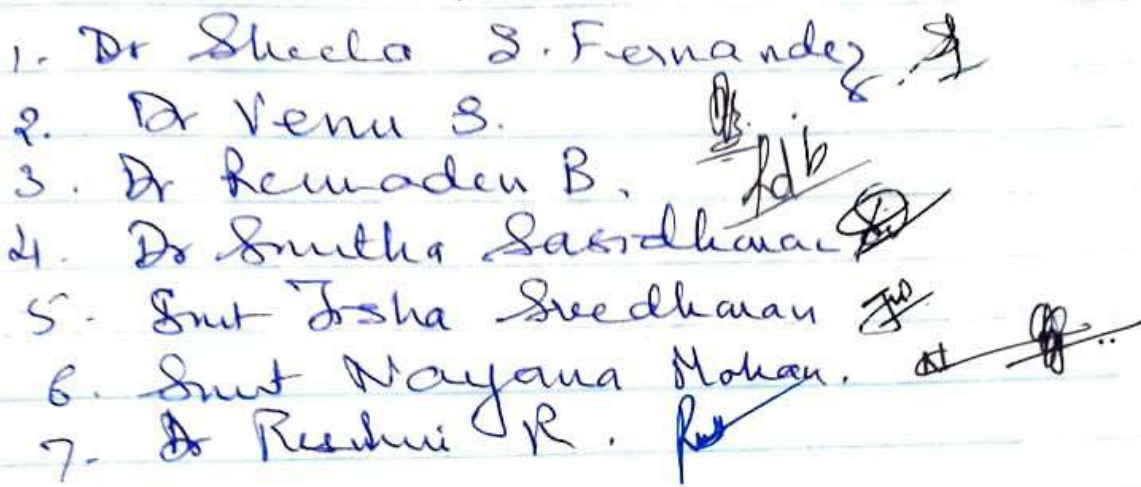 1. Dr Sheela S. Fernandez
2. Dr Venu S.
3. Dr Remadevi B.
4. Dr Smitha Sasidharan
5. Smt Jisha Sreedharan
6. Smt Nayana Mohan.
7. Dr Reshmi R.